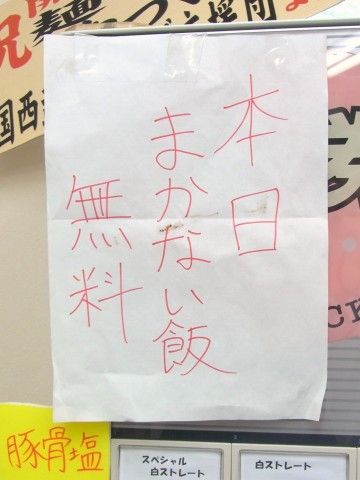 本日
まかない飯
無料
豚骨塩
スペシャル
白ストレート
白ストレート
祝
国西
応援団